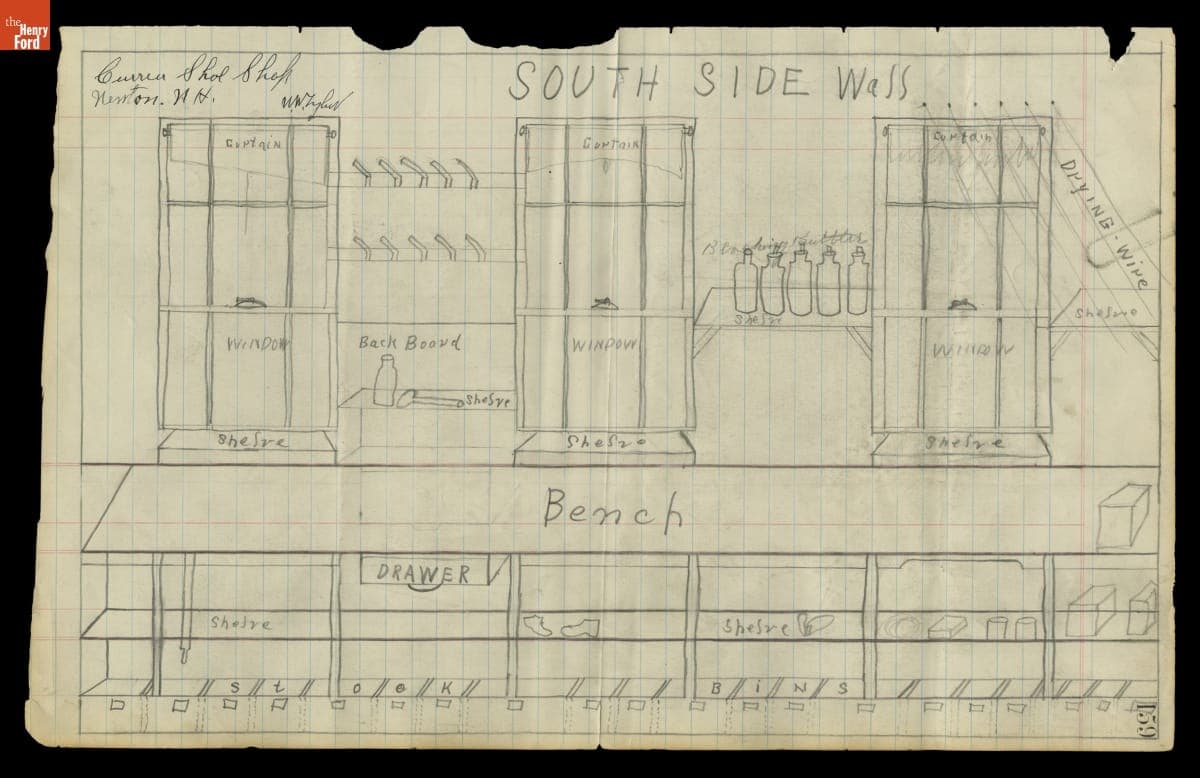 the
Henry
Ford
Currier Shoe Shop
Newton. N H.
SOUTH SIDE Wall
CURTAIN
CURTAIN
CURTAIN
DRYING - Wire
Blacking Buttles
Shelve
Shelve
WINDOW
Back Board
WINDOW
WINDOW
Shelve
Shelve
Shelve
Shelve
Bench
DRAWER
Shelve
Shelve
Stock
BINS
159